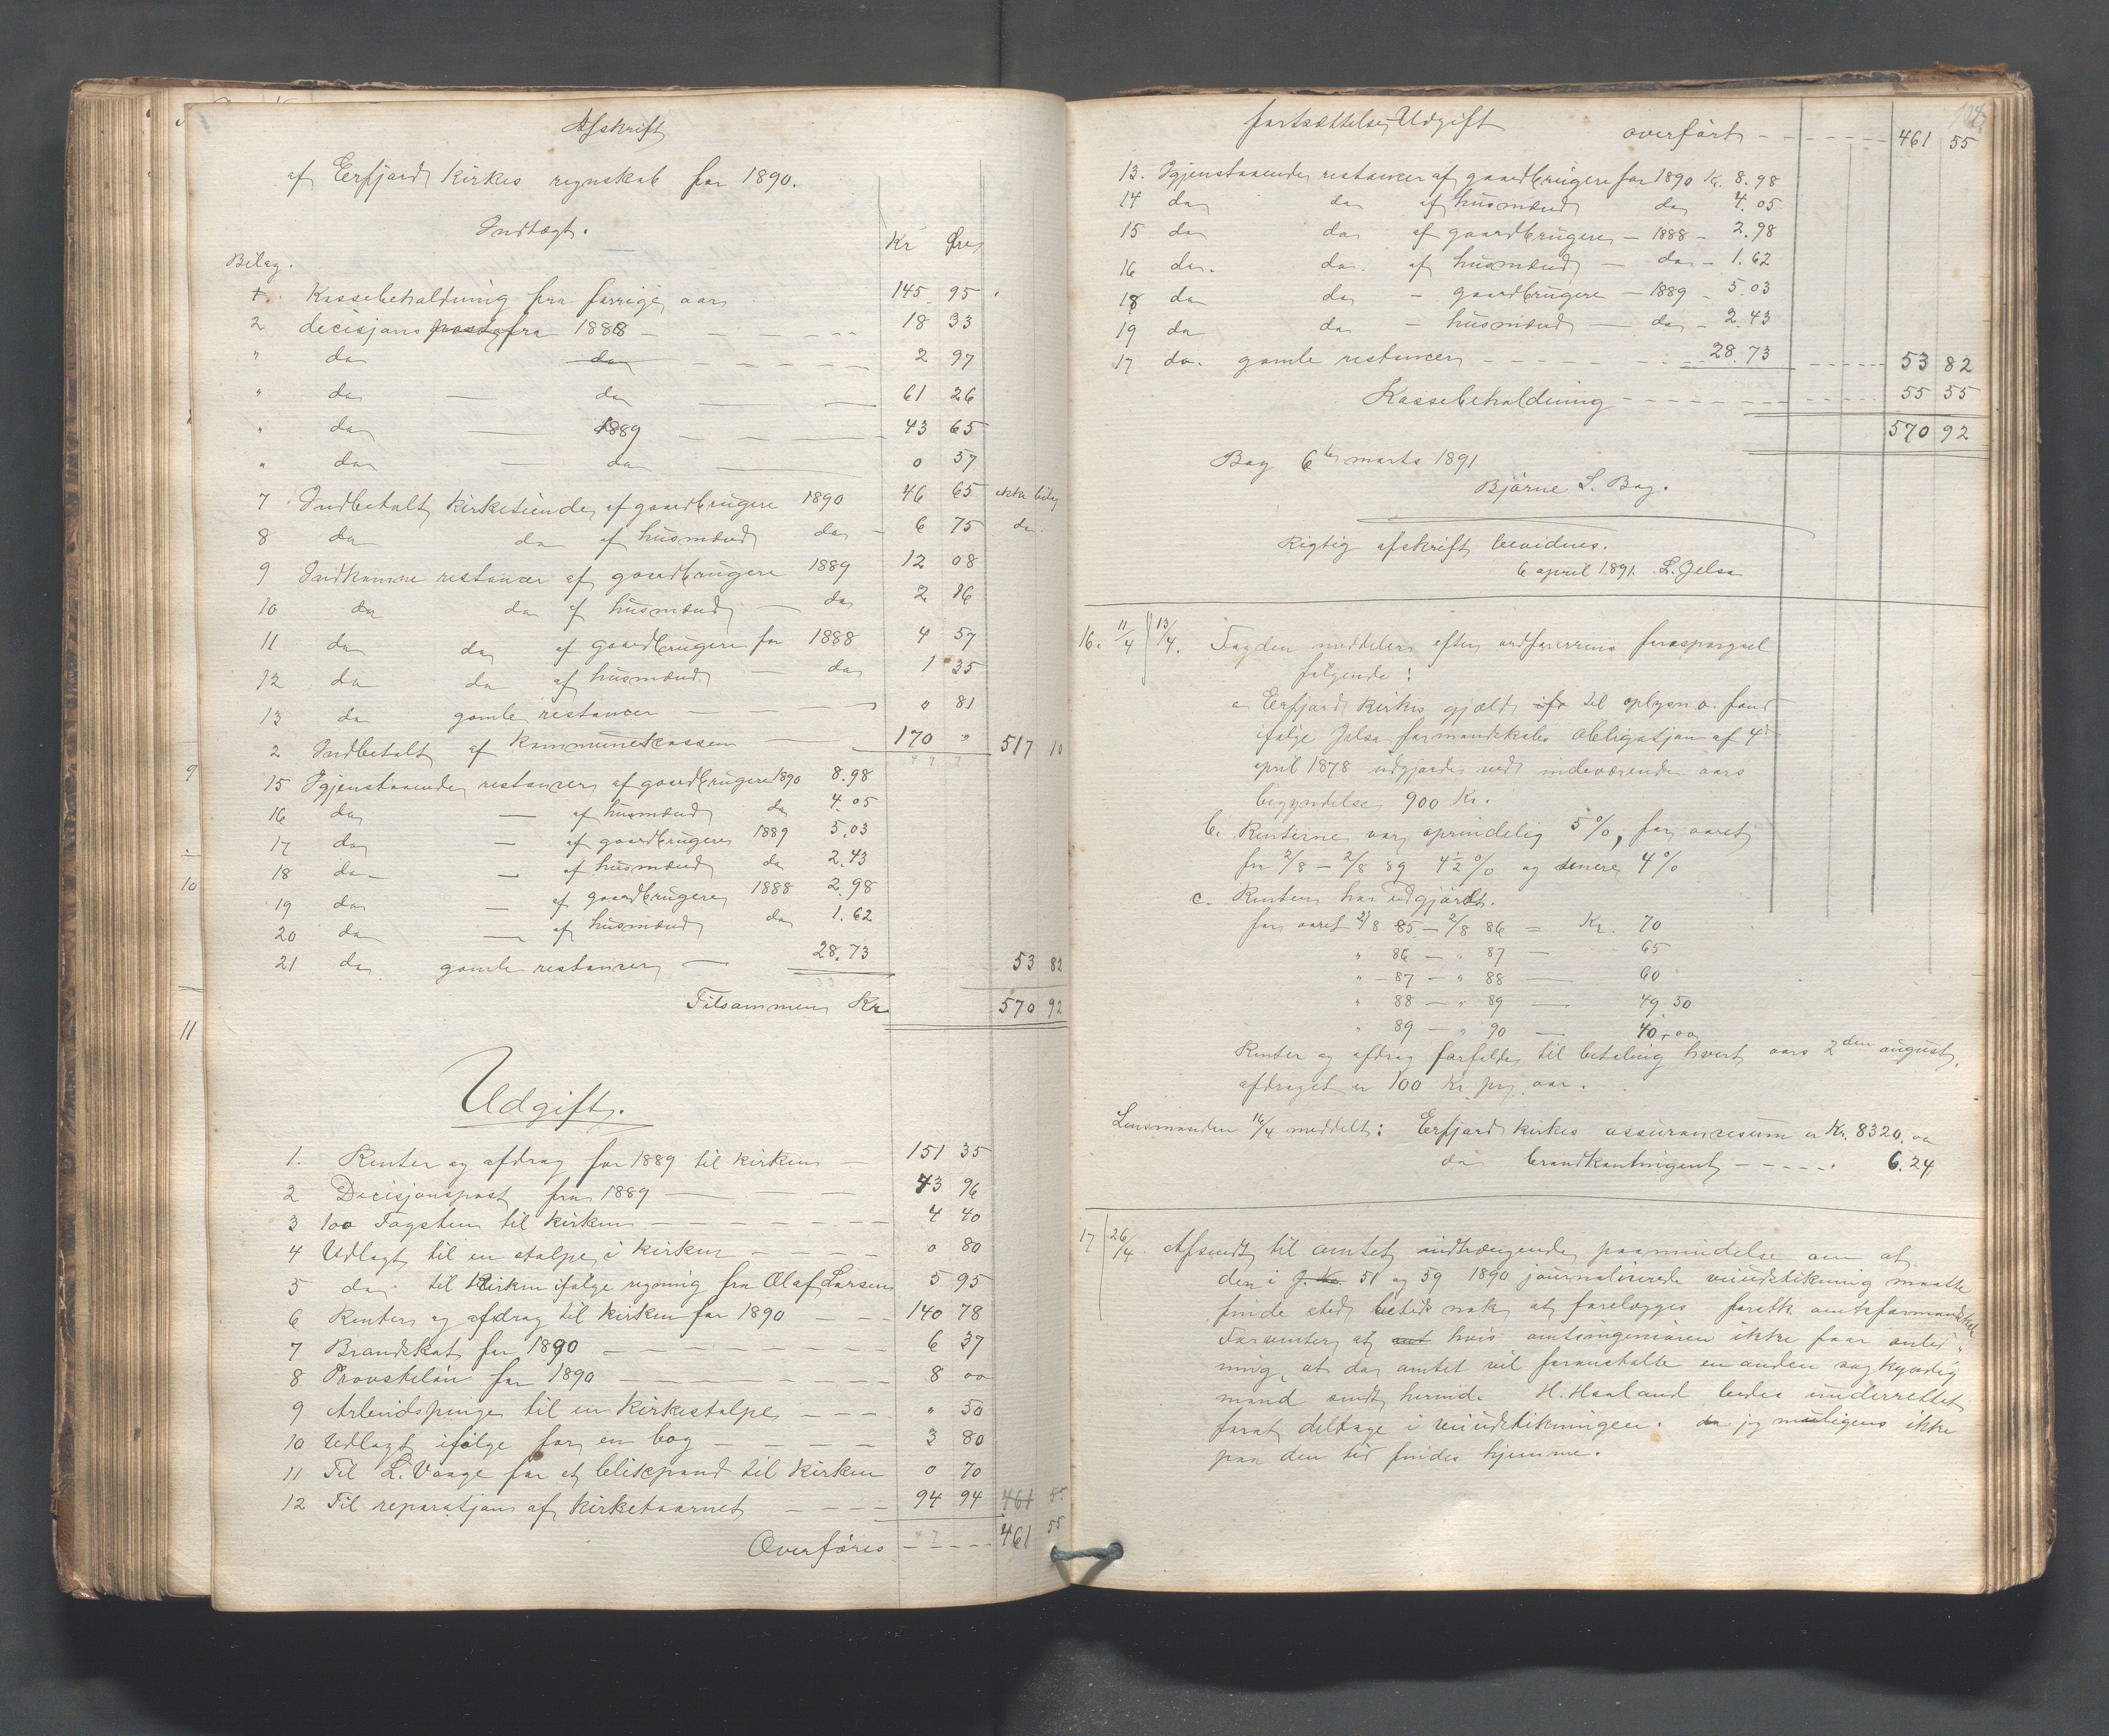 Afskrift
af Erfjord Kirkes regnskab for 1890.
Indtægt.
Kr Øre
Bilag.
1. Kassebeholdning fra forrige aar 145 95
2 decisjons posta fra 1888 18 33
" do do 2 97
" do do 61 26
" do 1889 43 65
" do do 0 57
7 Indbetalt kirketiende af gaardbrugere 1890 46 65 ikke bilag
8 do do af husmænd do 6 75 do.
9 Indkomne restancer af gaardbrugere 1889 12 08
10 do do af husmænd do 2 16
11 do do af gaardbrugere for 1888 4 57
12 do do af husmænd do 1 35
13 do gamle restancer 0 81
2 Indbetalt af Kommunekassen 170 " 517 10
15 Igjenstaaende restancer af gaardbrugere 1890 8.98
16 do af husmænd do 4.05
17 do af gaardbrugere 1889 5.03
18 do af husmænd do 2.43
19 do af gaardbrugere 1888 2.98
20 do af husmænd do 1.62
21 do gamle restancer 28.73 53 82
Tilsammen Kr 570 92
Udgift.
1. Renter og afdrag for 1889 til kirken 151 35
2 Decisjonspost fra 1889 43 96
3 100 Tagsten til kirken 4 40
4 Udlagt til en stolpe i kirken 0 80
5 do til kirken ifølge regning fra Olaf Larsen 5 95
6 Renter og afdrag til kirken for 1890 140 78
7 Brandskat for 1890 6 37
8 Provsteløn for 1890 8 00
9 Arbeidspenge til en Kirkestolpe " 50
10 Udlagt ifølge for en bog 3 80
11 Til L. Vaage for et blikspand til kirken 0 70
12 Til reparasjon af kirketaarnet 94 94 461 55
Overføres 461 55
104
fortsættelse, Udgift overført 461 55
13. Igjenstaaende restancer af gaardbrugere for 1890 Kr. 8.98
14 do do af husmænd do 4.05
15 do do af gaardbrugere - 1888 - 2.98
16 do. do. af husmænd - do - 1.62
18 do do - gaardbrugere - 1889 - 5.03
19 do do - husmænd - do - 2.43
17 do. gamle restancer 28.73 53 82
Kassebeholdning 55 55
570 92
Bog 6te marts 1891
Bjørne L. Bog.
Rigtig afskrift bevidnes.
6 april 1891. L. Jelsa
16. 11/4 13/4. Fogden meddeler efter ordførerens forespørgsel
følgende:
a Erfjord Kirkes gjæld ifø til oplysn o. fond
ifølge Jelsa formandskabs Obligasjon af 4de
april 1878 udgjorde ved indeværende aars
begyndelse 900 Kr.
b. Renterne var oprindelig 5 %, for aaret
fra 2/8 - 2/8 89 4½ % og senere 4 %
c. Renten har udgjordt.
for aaret 2/8 85 - 2/8 86 = Kr. 70
" 86 - " 87 - 65
" - 87 - " 88 - 60
" 88 - " 89 - 49.50
" 89 - " 90 - 40.00
Renter og afdrag forfalder til betaling hvert aars 2den august,
afdraget er 100 Kr pr aar.
Lensmanden 16/4 meddelt: Erfjord kirkes assurancesum er Kr. 8320.00
do brandkontingent 6.24
17 26/4 Afsendt til amtet indtrængende paamindelse om at
den i J. No. 51 og 59 1890 journaliserede veiudstikning maatte
finde sted betids nok at forelægges første amtsformandskab
Forventer at amt hvis amtsingeniøren ikke faar anled-
ning, at da amtet vil foranstalte en anden sagkyndig
mand sendt herind. H. Haaland bedes underrettet
forat deltage i veiudstikningen. da jeg muligens ikke
paa den tid findes hjemme.